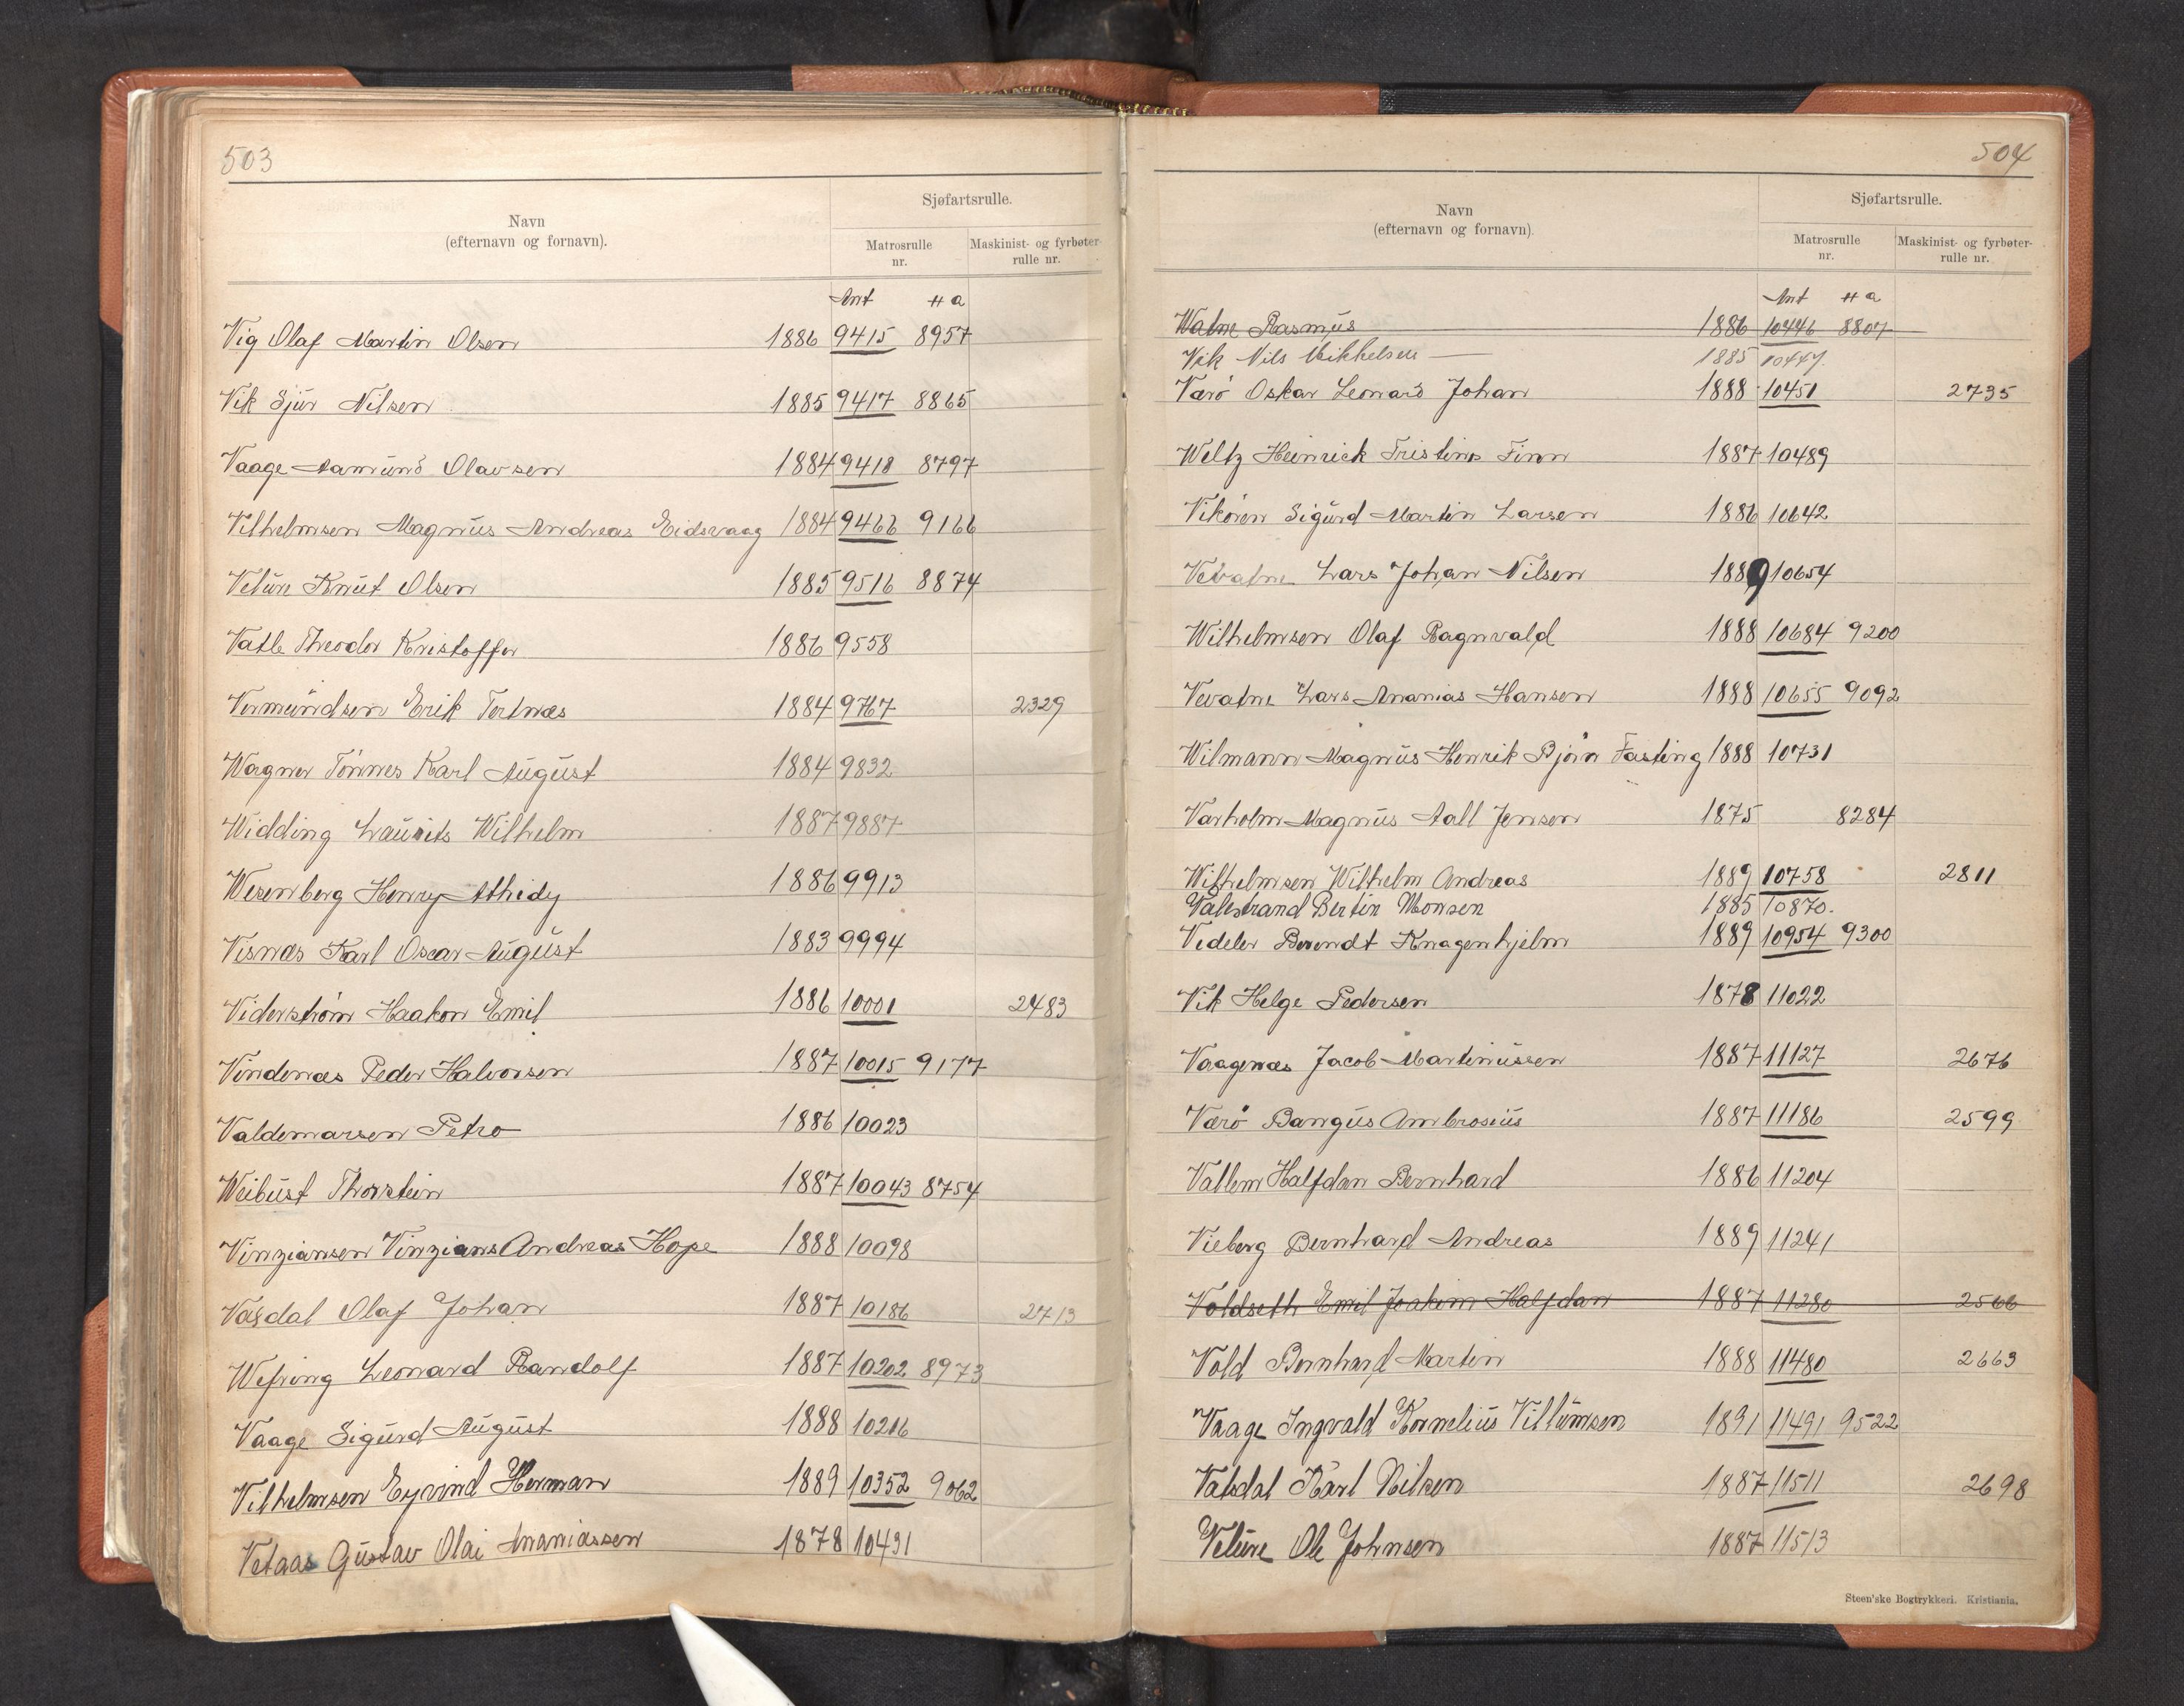 503
Navn
(efternavn og fornavn).
Sjøfartsrulle.
Matrosrulle
nr.
Maskinist- og fyrbøter-
rulle nr.
Ant H a
Vig Olaf Martin Olsen 1886 9415 8957
Vik Sjur Nilsen 1885 9417 8865
Vaage Aamund Olavsen 1884 9418 8797
Vilhelmsen Magnus Andreas Eidsvaag 1884 9466 9166
Veture Knut Olsen 1885 9516 8874
Vatle Theodor Kristoffer 1886 9558
Vermundsen Erik Tertnæs 1884 9767 2329
Wagner Tönnes Karl August 1884 9832
Widding Laurits Wilhelm 1887 9887
Wesenberg Henry 1886 9913
Visnæs Karl Oscar August 1883 9994
Viderstrøm Haakon Emil 1886 10001 2483
Vindenæs Peder Halvorsen 1887 10015 9177
Valdemarsen Petro 1886 10023
Weibust Thorstein 1887 10043 8754
Vinziansen Vinzians Andreas Hope 1888 10098
Vasdal Olaf Johan 1887 10186 2713
Wefring Leonard Randolf 1887 10202 8973
Vaage Sigurd August 1888 10216
Vilhelmsen Eyvind Herman 1889 10352 9062
Vetaas Gustav Olai Ananiassen 1878 10431
504
Navn
(efternavn og fornavn).
Sjøfartsrulle.
Matrosrulle
nr.
Maskinist- og fyrbøter-
rulle nr.
Ant H a
Watne Rasmus 1886 10446 8807
Vik Nils Mikkelsen 1885 10447.
Værö Oskar Leonard Johan 1888 10451 2735
Weltz Heinrick Tristino Finn 1887 10489
Vikören Sigurd Martin Larsen 1886 10642
Vevatne Lars Johan Nilsen 1889 10654
Wilhelmsen Olaf Ragnvald 1888 10684 9200
Vevatne Lars Ananias Hansen 1888 10655 9092
Wilmann Magnus Henrik Bjørn Fasting 1888 10731
Varholm Magnus Aall Jensen 1875 8284
Wilhelmsen Wilhelm Andreas 1889 10758 2811
Valestrand Bertin Monsen 1885 10870.
Vedeler Berendt Knagenhjelm 1889 10954 9300
Vik Helge Pedersen 1878 11022
Vaagenæs Jacob Martinussen 1887 11127 2676
Værö Bangus Ambrosius 1887 11186 2599
Vallem Halfdan Bernhard 1886 11204
Vieberg Bernhard Andreas 1889 11241
Voldseth Emil Joakim Halfdan 1887 11280 2566
Vold Bernhard Martin 1888 11480 2663
Vaage Ingvald Kornelius Villumsen 1891 11491 9522
Vatsdal Karl Nilsen 1887 11511 2698
Veture Ole Johnsen 1887 11513
Steen'ske Bogtrykkeri. Kristiania.